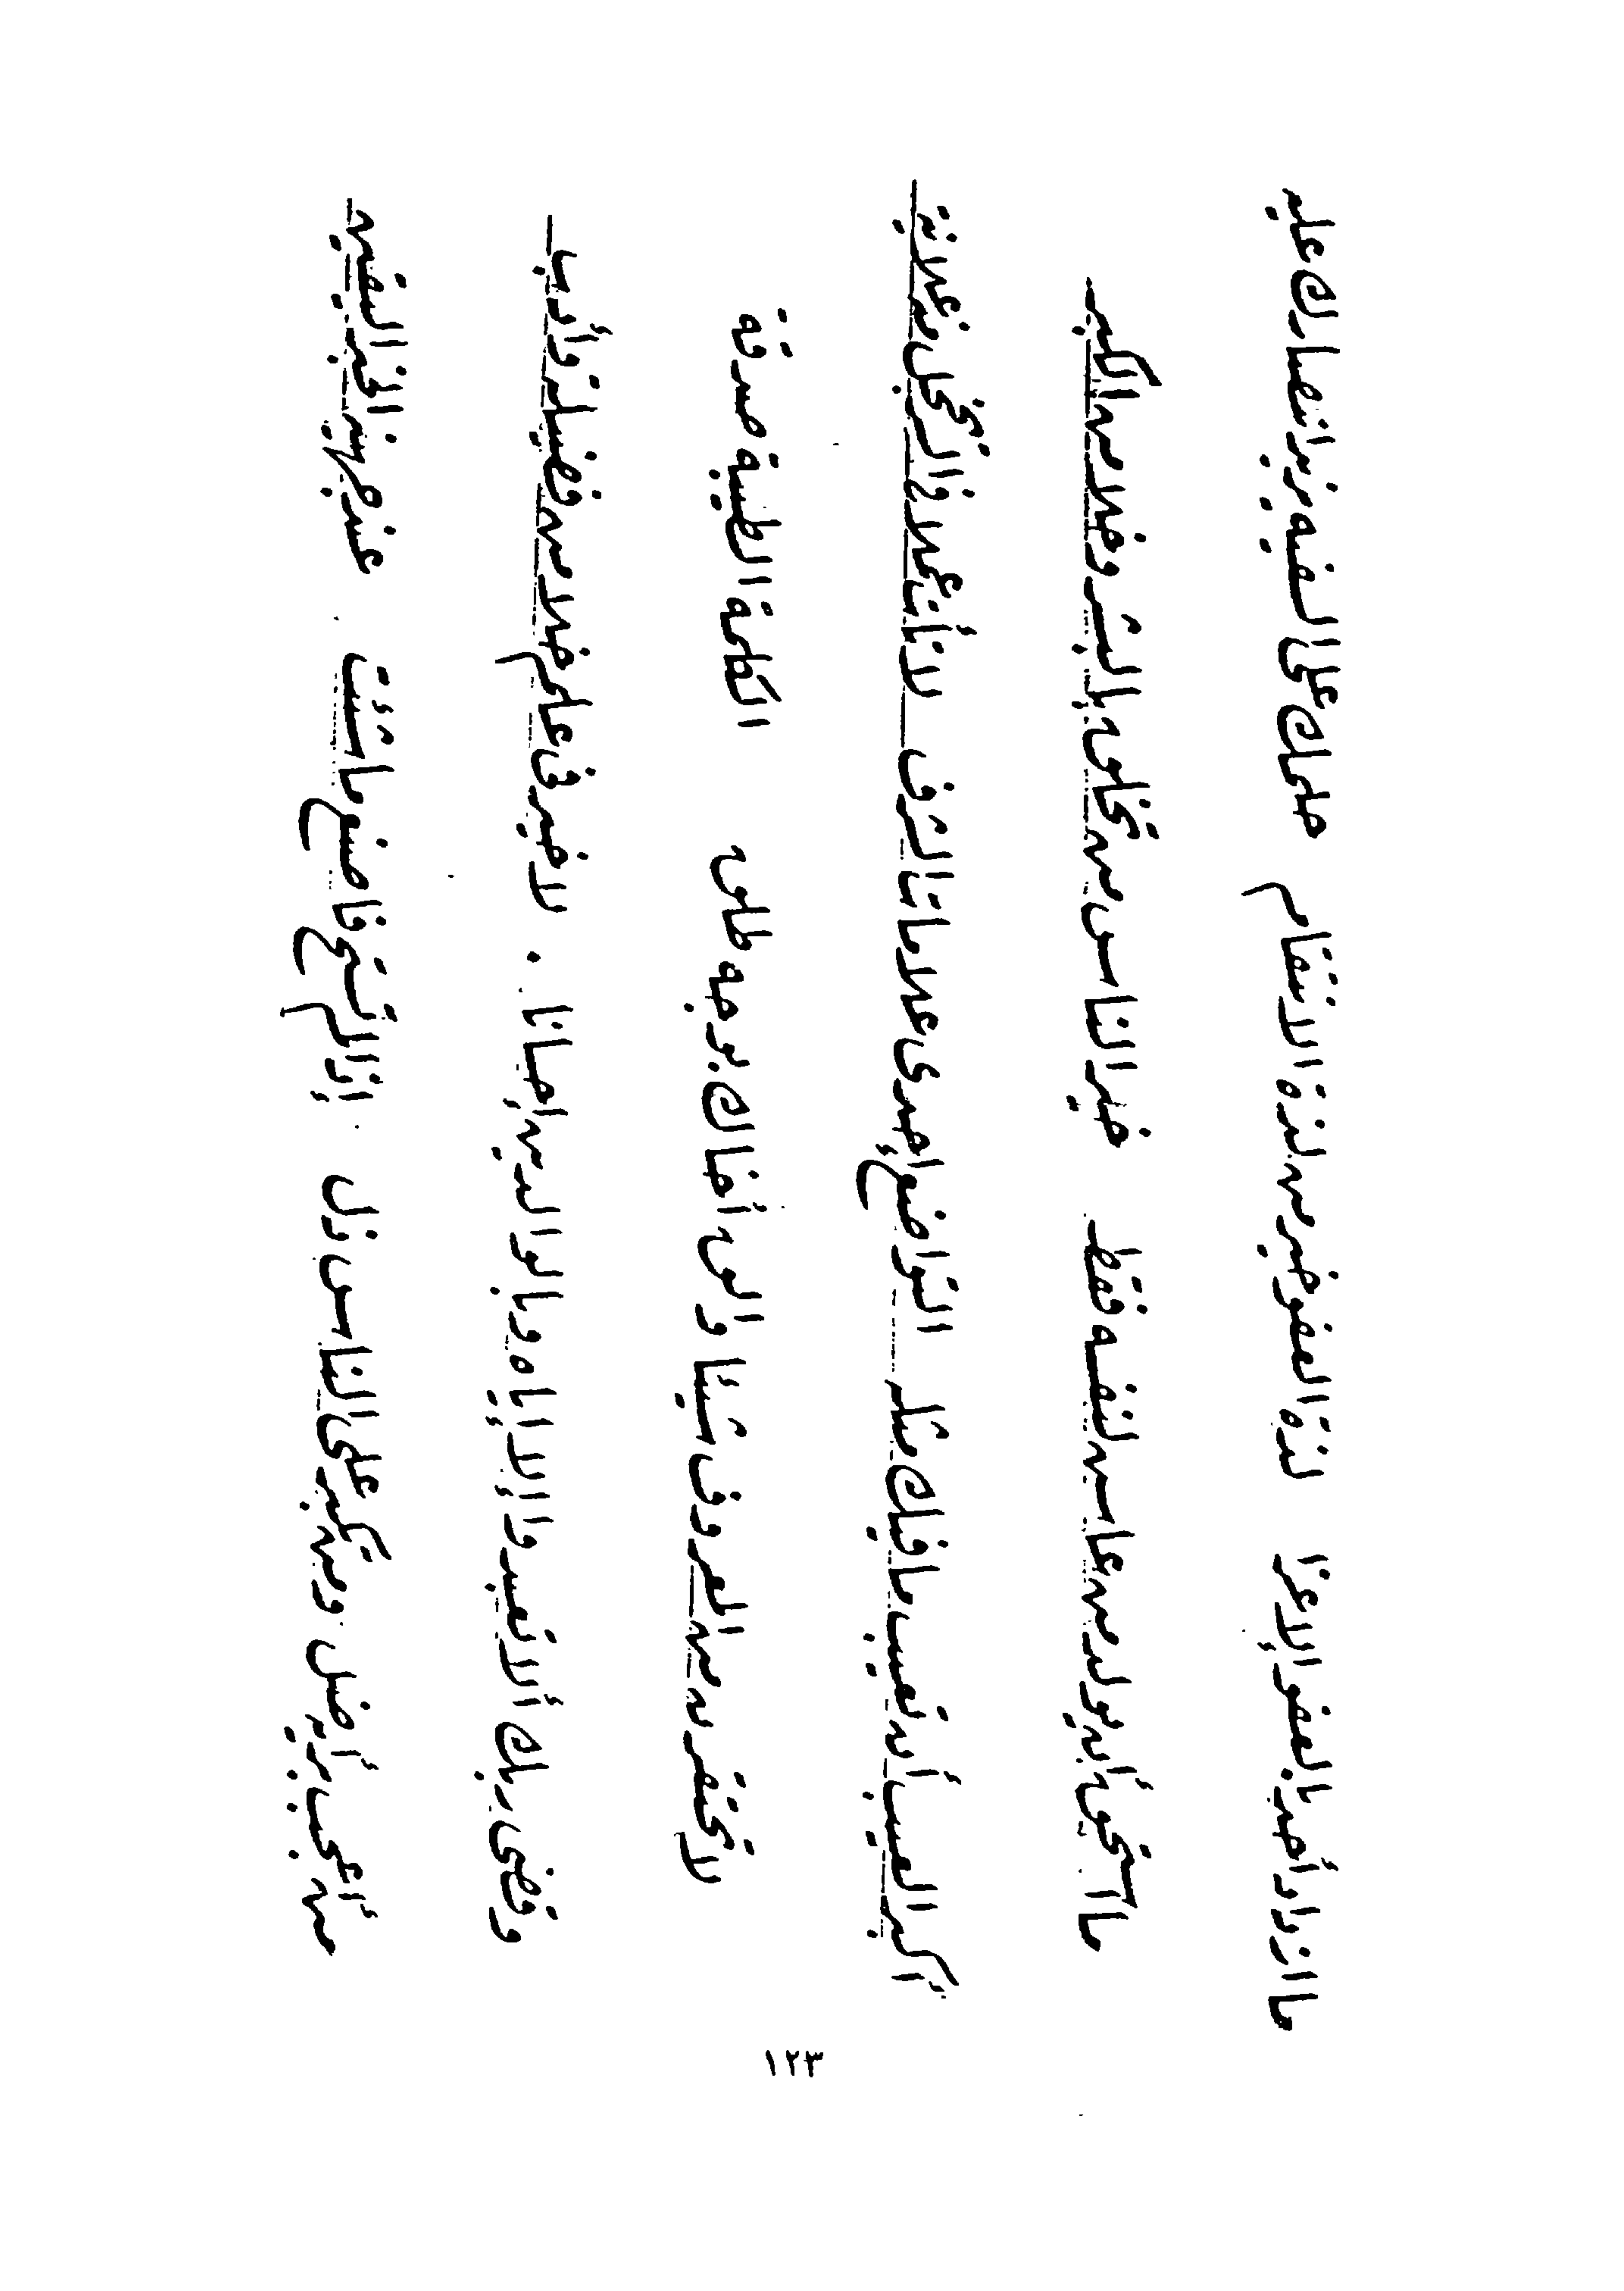 ما ازداد أحد بالعفو إلا عزا لذة العفو خير من لذة الانتقام حلمك على السفيه يزيد انتصارك عليه
ما استحق أن يولد من عاش لنفسه فقط خير الناس من تخلق بالبشر وخلا من الكبر
أكبر العيب أن تعيب ما فيك مثله التواضع إحدى علامات الشرف لا تأت عملا في السر تخجل منه علانية
لا تحقرن من المعروف شيئا والق أخاك بوجه طلق الكلمة الطيبة صدقة
وقضى ربك ألا تعبدوا إلا إياه وبالوالدين إحسانا . لا خير في علم خلا من فضيلة وأدب
من أعجب برأيه ضل ومن تكبر على الناس ذل إذا لم تستح فاصنع ما شئت عند جهينة الخبر اليقين
١٢٣